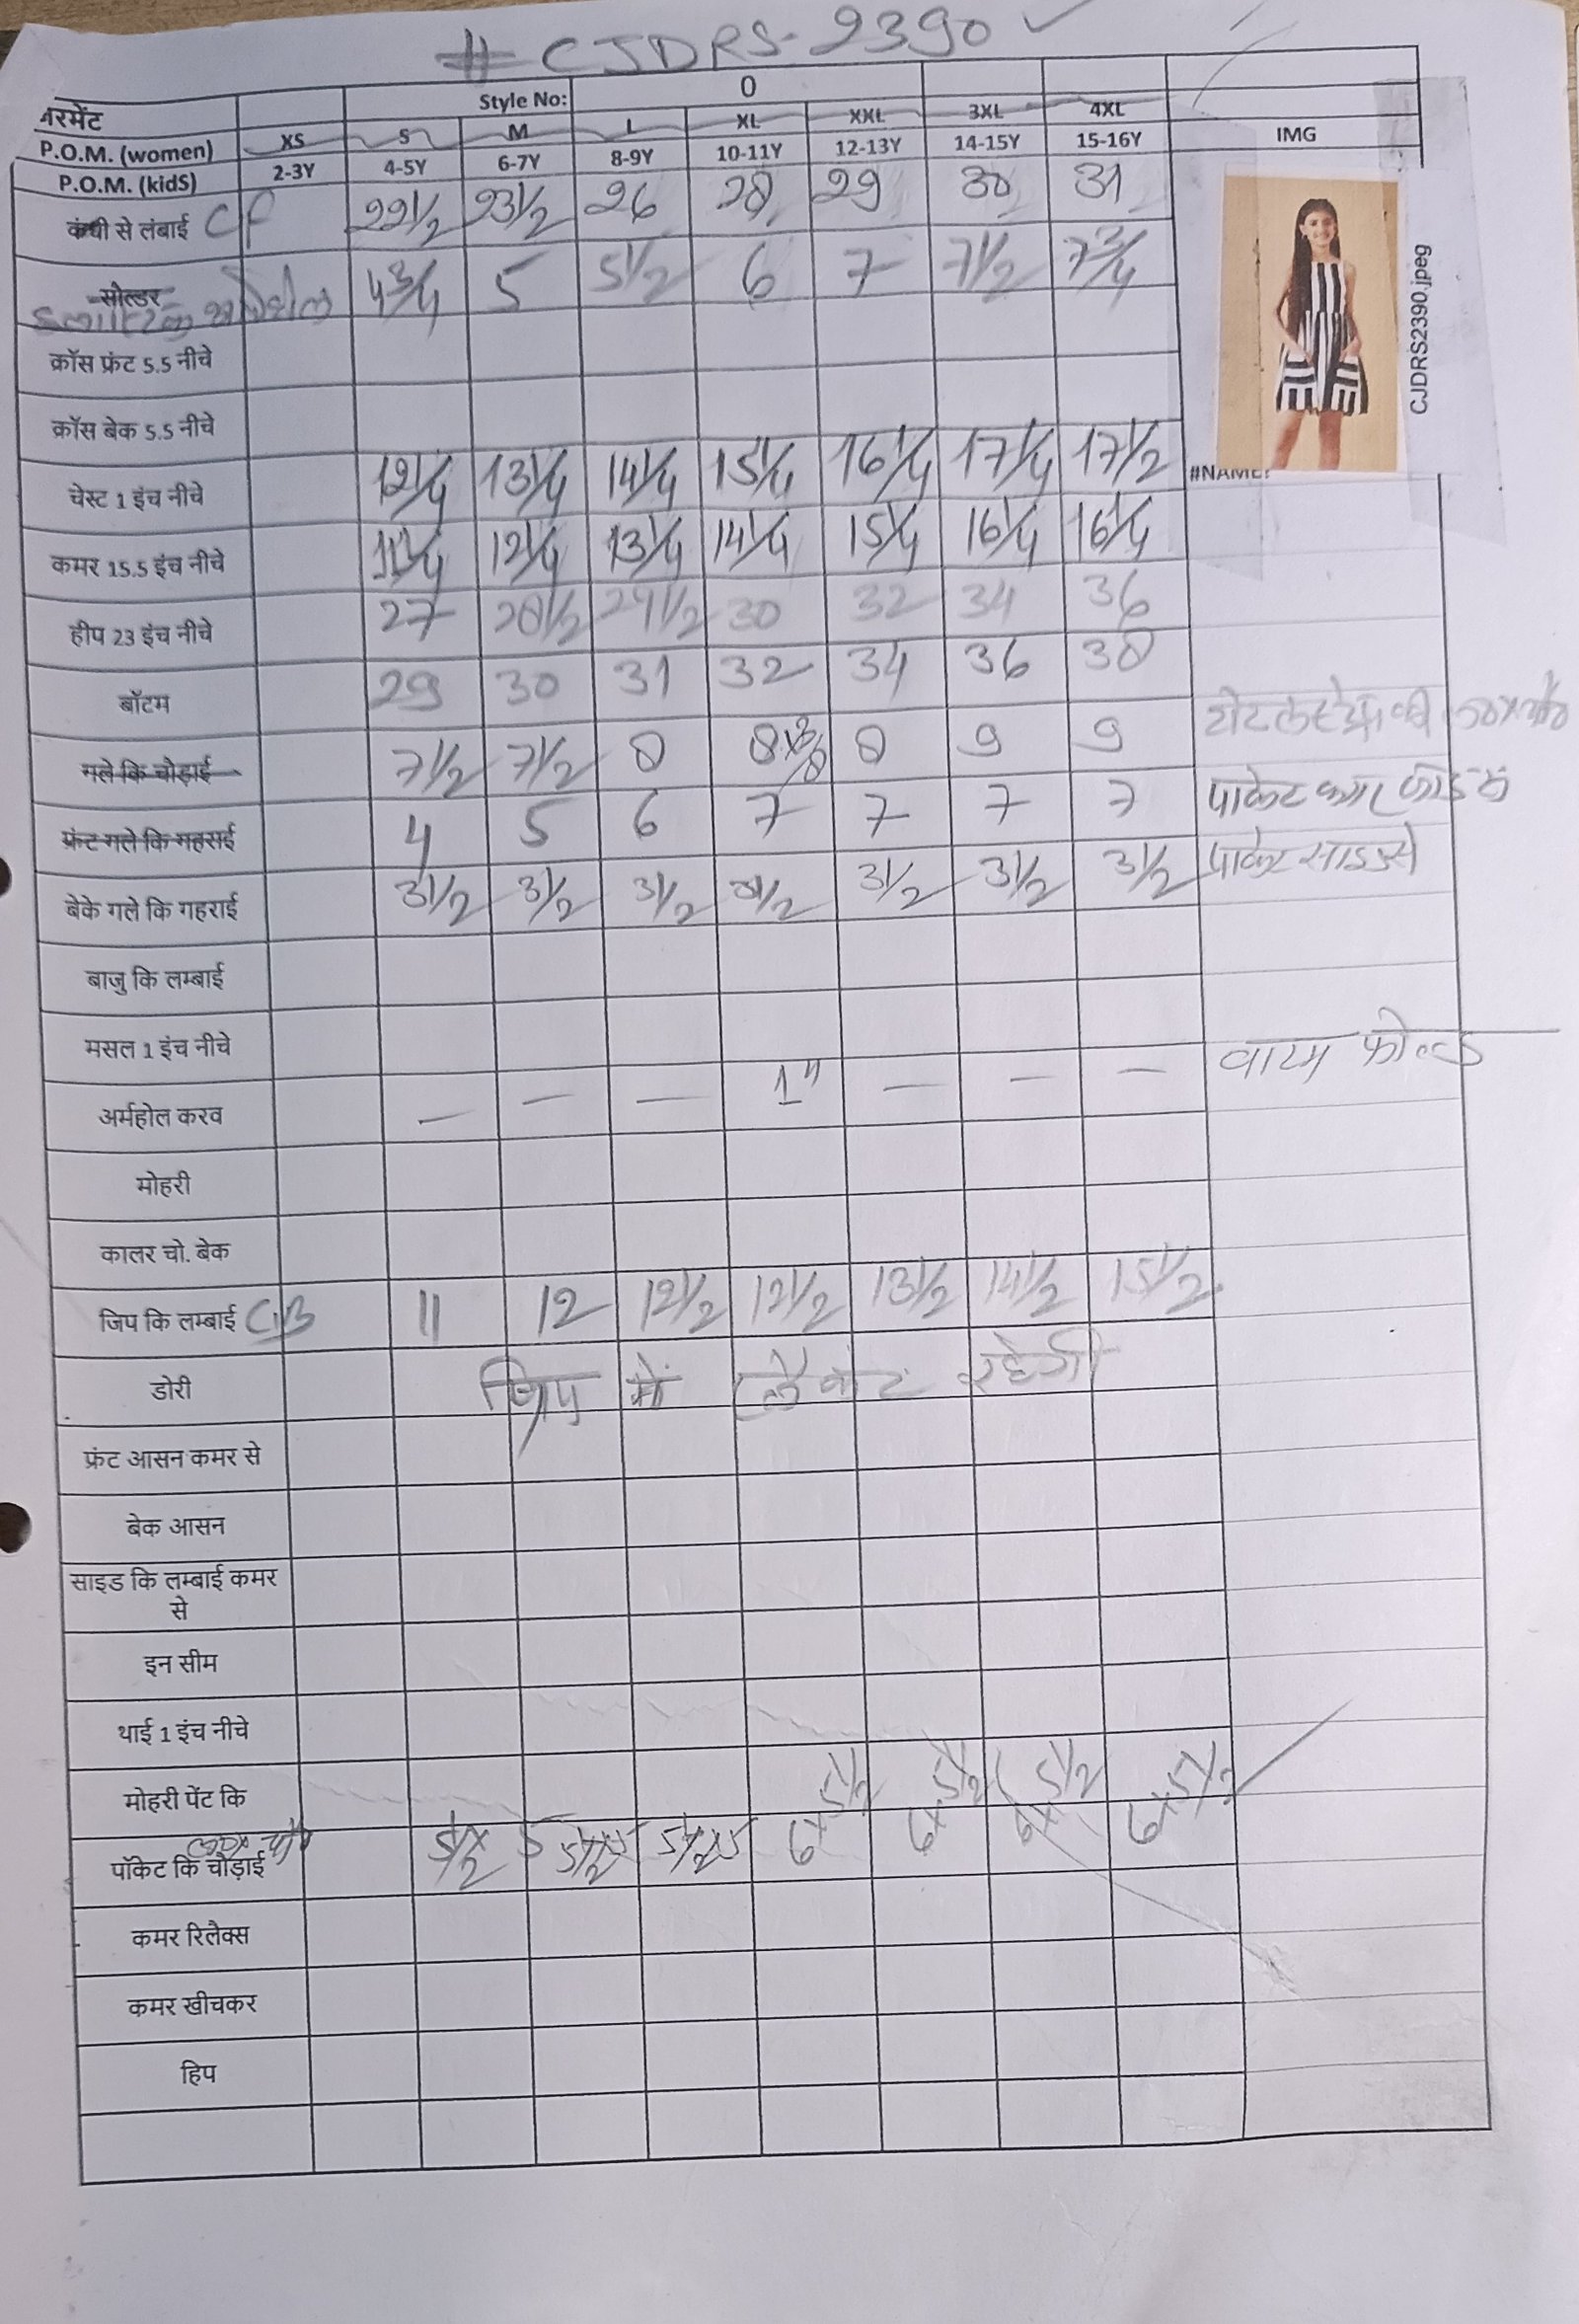 # CJDRS-2390 ✓
गरमेंट Style No: 0
P.O.M. (women) XS S M L XL XXL 3XL 4XL IMG
P.O.M. (kidS) 2-3Y 4-5Y 6-7Y 8-9Y 10-11Y 12-13Y 14-15Y 15-16Y
कंधी से लंबाई CF 22 1/2 23 1/2 26 28 29 30 31
सोल्डर 4 3/4 5 5 1/2 6 7 7 1/2 7 3/4
CJDRS2390.jpeg
क्रॉस फ्रंट 5.5 नीचे
क्रॉस बेक 5.5 नीचे
#NAME?
चेस्ट 1 इंच नीचे 12 1/4 13 1/4 14 1/4 15 1/4 16 1/4 17 1/4 17 1/2
कमर 15.5 इंच नीचे 11 1/4 12 1/4 13 1/4 14 1/4 15 1/4 16 1/4 16 1/4
हीप 23 इंच नीचे 27 28 1/2 29 1/2 30 32 34 36
बॉटम 29 30 31 32 34 36 38
गले कि चोड़ाई 7 1/2 7 1/2 8 8 8 9 9
फ्रंट गले कि गहराई 4 5 6 7 7 7 7 पाकेट
बेके गले कि गहराई 3 1/2 3 1/2 3 1/2 3 1/2 3 1/2 3 1/2 3 1/2 पाकेट साइड से
बाजु कि लम्बाई
मसल 1 इंच नीचे
अर्महोल करव — — — 1" — — — वाटम फोल्ड
मोहरी
कालर चो. बेक
जिप कि लम्बाई CB 11 12 12 1/2 12 1/2 13 1/2 14 1/2 15 1/2
डोरी जिप में रहेगी
फ्रंट आसन कमर से
बेक आसन
साइड कि लम्बाई कमर
से
इन सीम
थाई 1 इंच नीचे
मोहरी पेंट कि
पॉकेट कि चोड़ाई 5 1/2 x 5 5 1/2 x 5 5 1/2 x 5 6 x 5 1/2 6 x 5 1/2 6 x 5 1/2 6 x 5 1/2
कमर रिलैक्स
कमर खीचकर
हिप